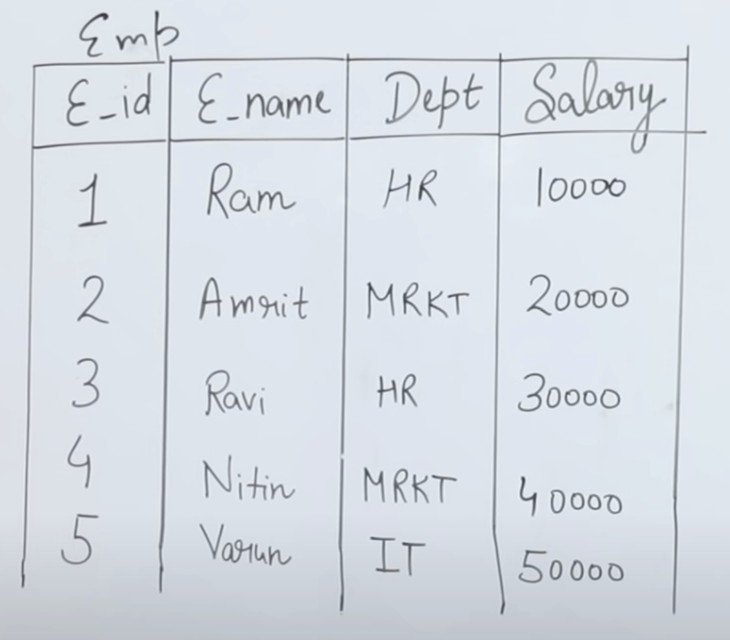 Emp
E_id E_name Dept Salary
1 Ram HR 10000
2 Amrit MRKT 20000
3 Ravi HR 30000
4 Nitin MRKT 40000
5 Varun IT 50000